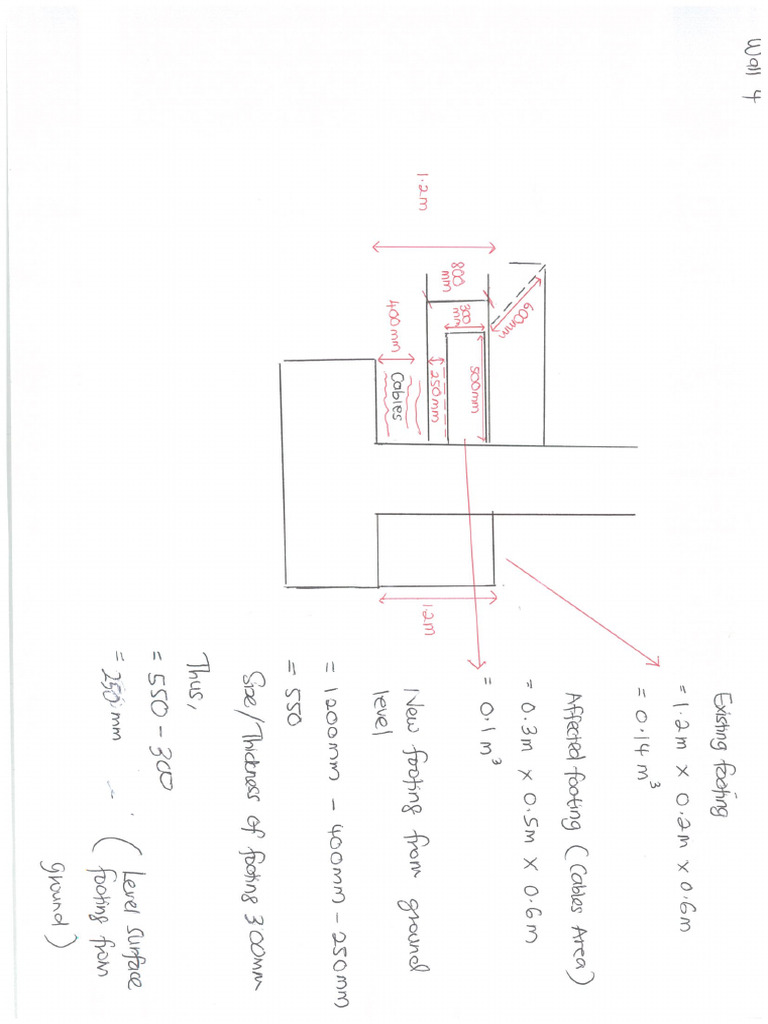 Wall 4
1.2m
800
mm
600mm
300
mm
500mm
400mm
250mm
Cables
1.2m
Existing footing
= 1.2m x 0.2m x 0.6m
= 0.14m³
Affected footing (Cables Area)
= 0.3m x 0.5m x 0.6m
= 0.1m³
New footing from ground
level
= 1200mm - 400mm - 250mm
= 550
Size/Thickness of footing 300mm
Thus,
= 550 - 300
= 250mm (Level surface
footing from
ground)